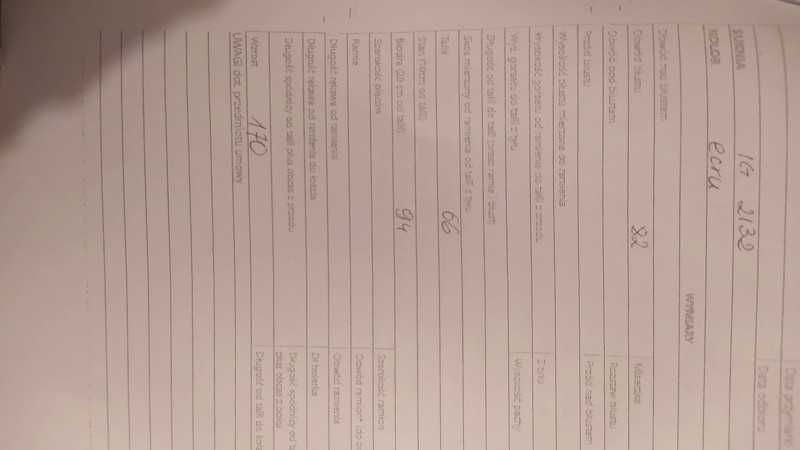 Data przyjm
Data odbioru
SUKNIA IG 2132
KOLOR ecru
WYMIARY
Obwód nad biustem
Obwód biustu 82
Miseczka
Obwód pod biustem
Rozstaw biustu
Przód biustu
Przód nad biustem
Wysokość biustu mierzona od ramienia
Wysokość gorsetu od ramienia do talii z przodu
Z tyłu
Wys. gorsetu do talii z tyłu
Wysokość pachy
Długość od talii do talii przez ramię i biust
Skos mierzony od ramienia od talii z tyłu
Talia 66
Stan (10cm od talii)
Biodra (20 cm od talii) 94
Szerokość pleców
Szerokość ramion
Ramię
Obwód ramion* (do b
Długość rękawa od ramienia
Obwód ramienia
Długość rękawa od ramienia do łokcia
Dł bolerka
Długość spódnicy od talii plus obcas z przodu
Długość spódnicy od t
plus obcas z boku
Wzrost 170
Długość od talii do kola
UWAGI dot. przedmiotu umowy